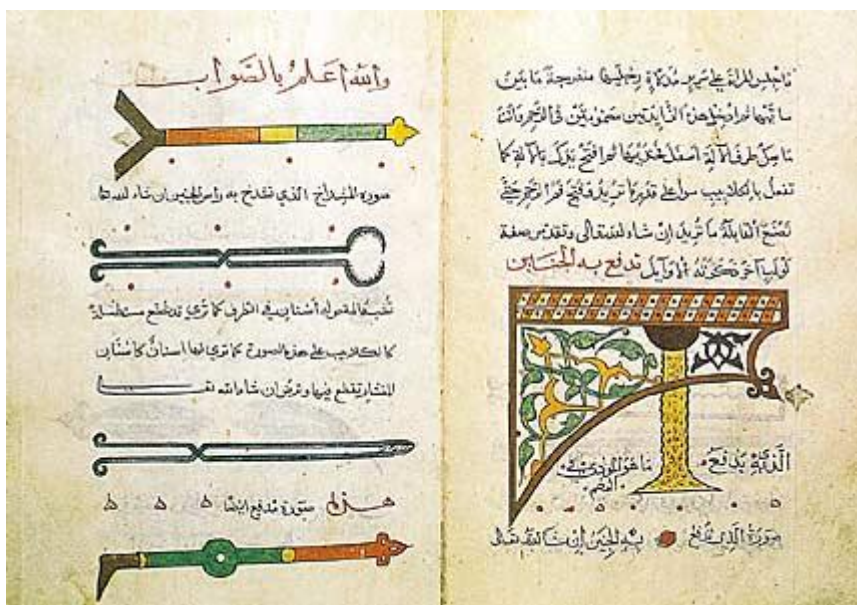 فاجلس المراة على سرير مدلاة رجليها منفرجة ما بين
ساقيها ثم ادخل هذين الزايدتين مضمومتين في الرحم وانت
ماسك طرف الالة اسفل فخذيها ثم افتح يدك بالالة كما
تفعل بالكلاليب سوا على قدر ما تريد فتح فم الرحم حتى
تصنع القابلة ما تريد ان شاء الله تعالى وتقدم صفة
لولب آخر ذكرته الاوايل تدفع به الجنين
يدفع ما هو
صورة الذي تدفع به الجنين ان شاء الله تعالى
والله اعلم بالصواب
صورة المشداخ الذي تشدخ به راس الجنين ان شاء الله
له أسنان في الطرف كما ترى وقد تصنع مستطيلة
كالكلاليب على هذه الصورة كما ترى لها اسنان كاسنان
المنشار يقطع بها وترض ان شاء الله
هذه صورة مدفع ايضا